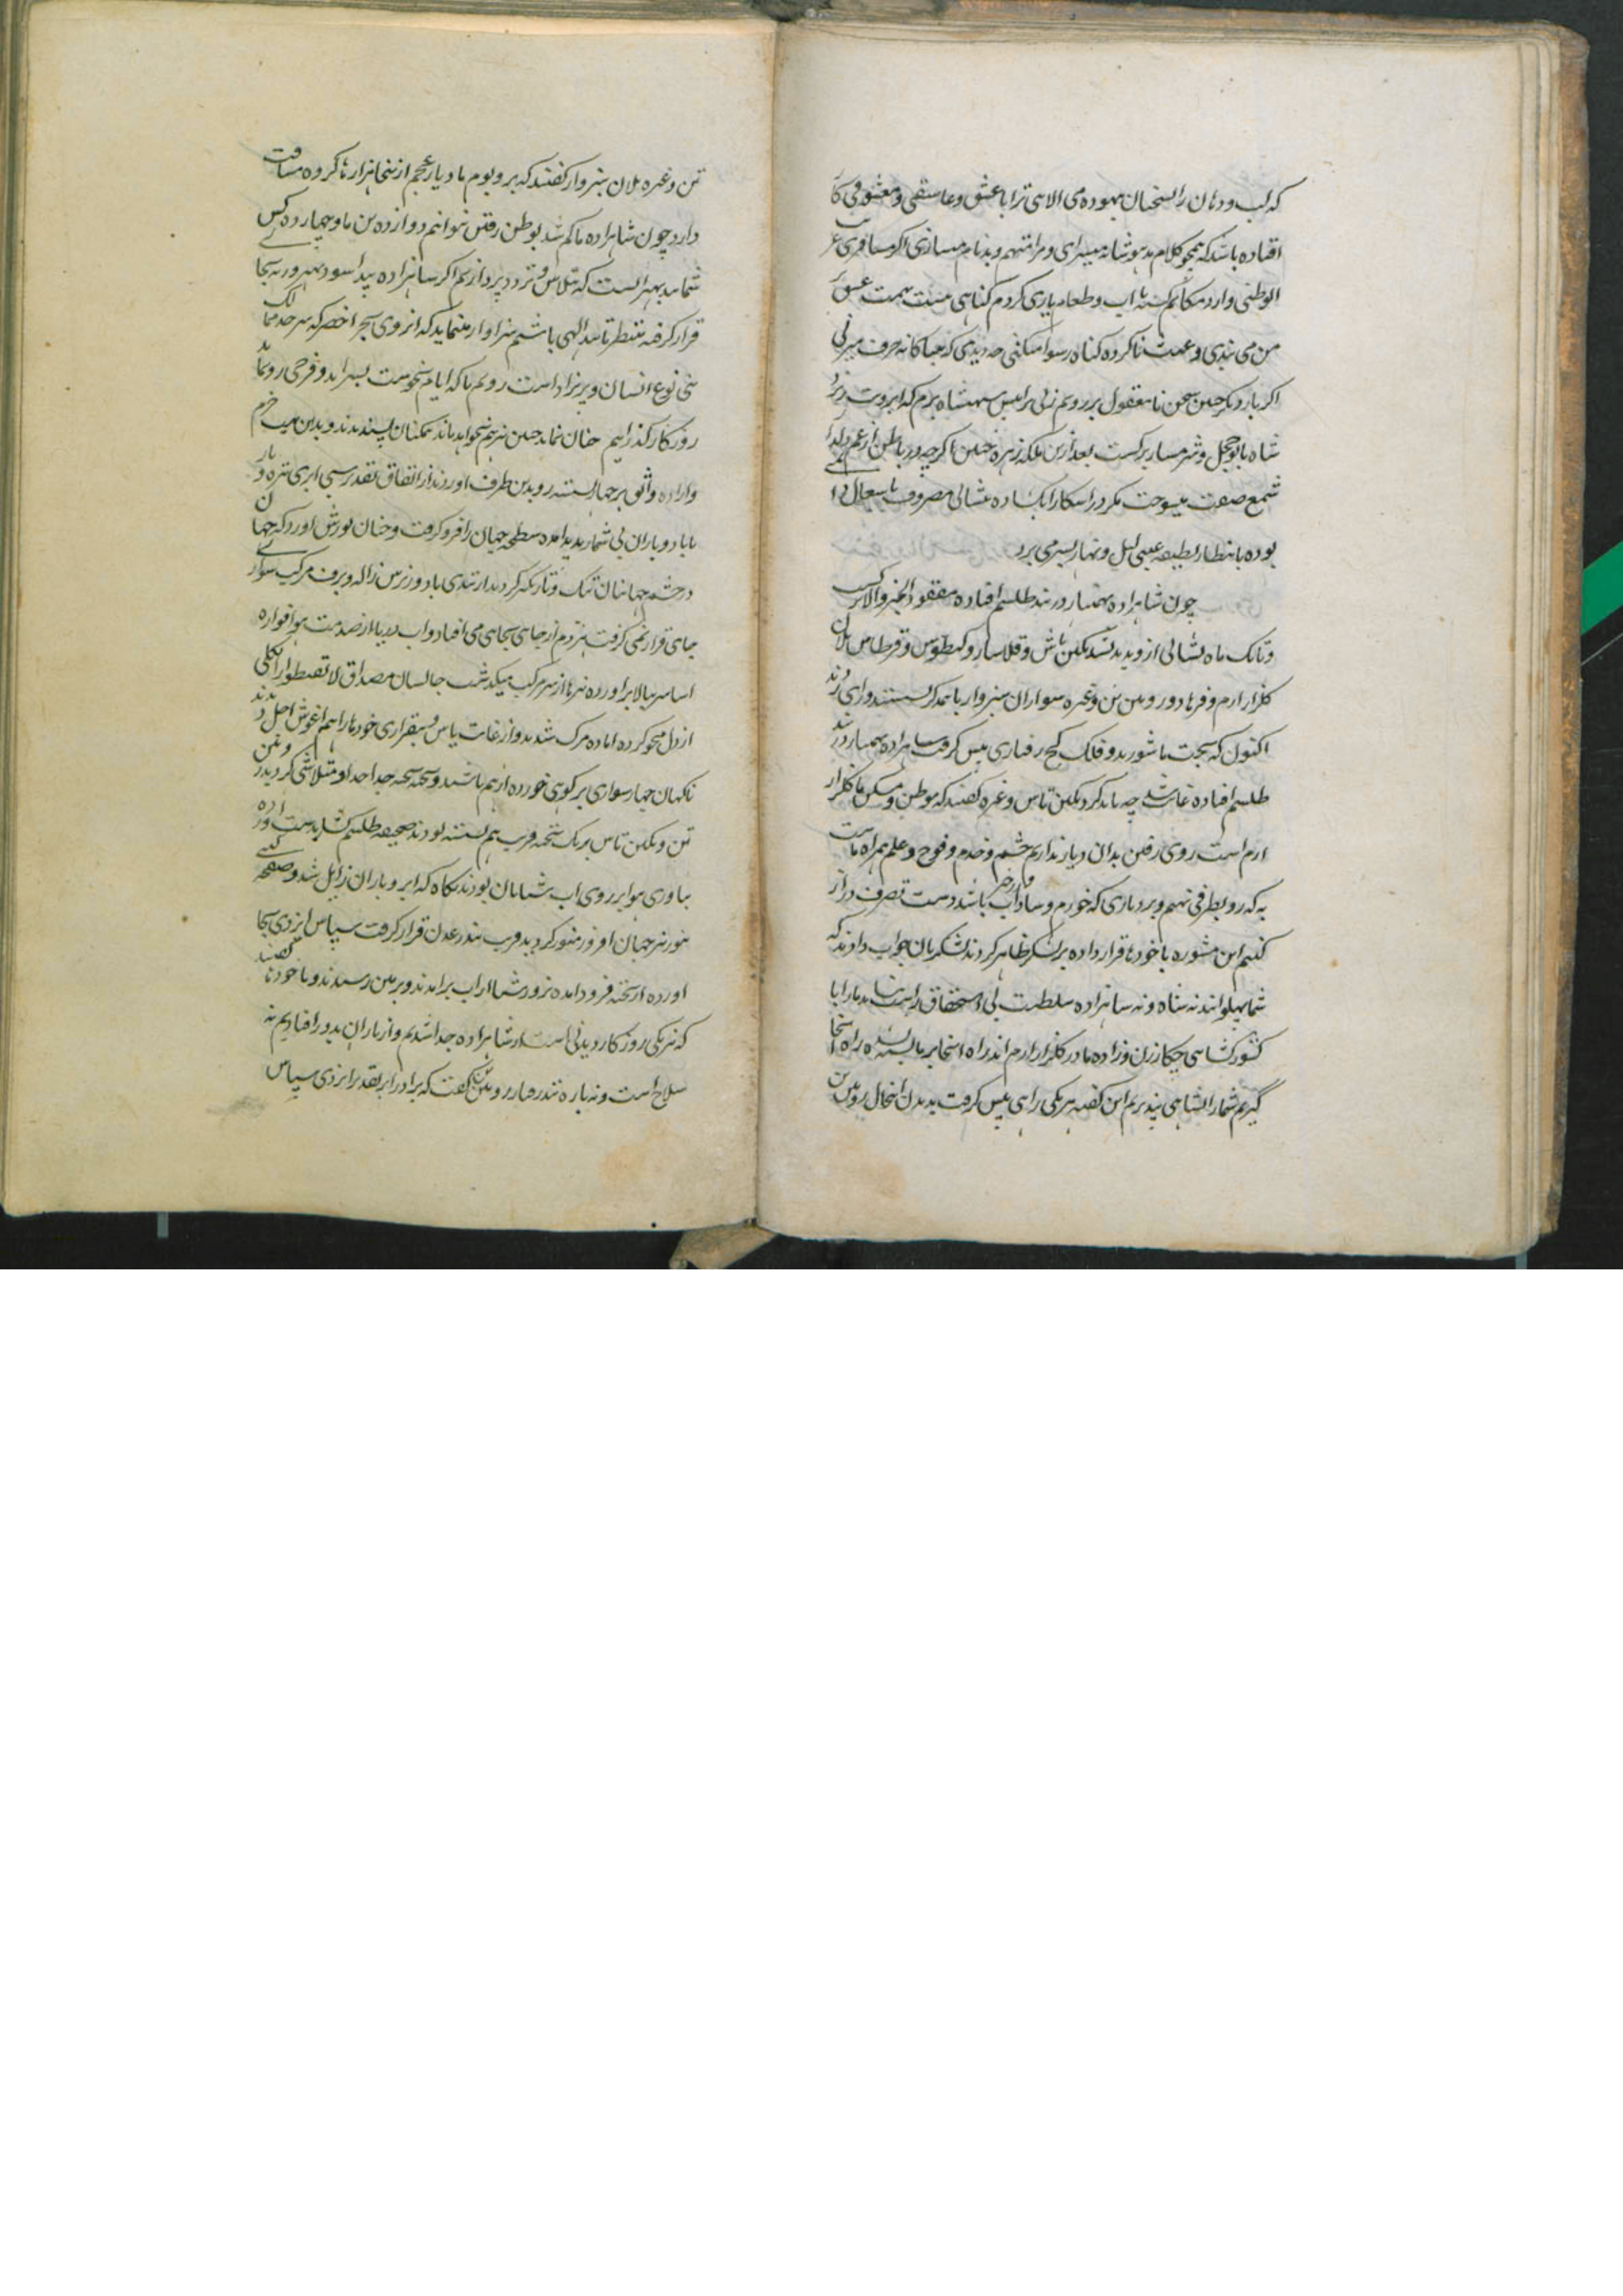 که لب و دهان را بسخنان بیهوده می الای ترا با عشق و عاشقی و معشوقی کا
افتاده باشد که همچو کلام مدهوشانه میسرای و مرا متهم و بدنام میسازی اکر مسافری غریب
الوطنی وارد مکانم کشته باب و طعام یاری کردم کناهی نیست تهمت عشق بر
من می بندی و عبث ناکرده کناه رسوا میکنی چه دیدی که بیباکانه حرف میزنی
اکر بار دیکر چنین سخن نامعقول بر رویم زنی ترا پیش شهنشاه برم که ابرویت ریزد
شاه بانو خجل و شرمسار برکشت بعد ازین ملکه زهره جبین اکرچه در باطن از غم دلدار
شمع صفت میسوخت مکر در اشکارا بکشاده بشانی مصروف باشغال
بوده بانتظار لطیفه غیبی لیل و نهار بسر می برد
چون شاهزاده بهمیار در بند طلسم افتاده مفقود الخبر والاثر کشت
و تا یک ماه نشانی از و پدید نشد نکین تاش و قلاسار و کیطوس و قرطاس یلان
کلزار ارم و فرهاد و رویین تن و غیره سواران سبزوار با همدکر نشستند و رای زدند
اکنون که بخت ما شورید و فلک کج رفتاری پیش کرفت شاهزاده بهمیار در بند
طلسم افتاده غایب شد چه باید کرد نکین تاش و غیره کفتند که موطن و مسکن ما کلزار
ارم است روی رفتن بدان دیار نداریم حشم و خدم و فوج و علم همراه ماست
به که رو بطرفی نهیم و بر دیاری که خورم و شاداب باشد دست تصرف دراز
کنیم این مشوره با خودها قرار داده بر لشکر ظاهر کردند لشکریان جواب دادند که
شما پهلوانند نه شاه و نه شاهزاده سلطنت بی استحقاق راست نیاید ما را با
کشورکشایی چکار زن و زاده ما در کلزار ارم اند راه انجا بر ما بسته نشده راه انجا
کیریم شما را بشاهی نپذیریم این کفته هر یکی راهی پیش کرفت بدیدن این حال رویین
تن و غیره یلان سبزوار کفتند که بر و بوم ما دیار عجم از ینجا هزارها کروه مسافت
دارد چون شاهزاده ما کم شد بوطن رفتن نتوانیم دوازده تن ما و چهارده کس
شمایید بهتر انست که بتلاش و تردد پردازیم اکر شاهزاده پیدا شود بهتر ور نه بجا
قرار کرفته منتظر تایید الهی باشیم سزاوار مینماید که از روی بحر اخضر که سرحد ممالک
بنی نوع انسان و پریزاد است رویم تا که ایام نحوست بسر اید و فرحی رو نماید
روزکار کذرانیم چنان نماند چنین نیز هم نخواهد ماند همکنان پسندیدند و بدین عزیمت
و اراده واثق بر جهاز نشسته رو بدین طرف اوردند از اتفاق تقدیر سپس ابری تیره و تار
با باد و باران بی شمار پدید امده سطح جهان را فرو کرفت و چنان یورش اورد که جهان
در چشم جهانیان تنک و تاریک کردید از تندی باد و ریزش ژاله و برف مرکب سواری
جای قرار نمی کرفت هردم از جای بجای می افتاد و اب دریا از صدمت هوا فواره
اسا سر ببالا براورده نیزها از سر مرکب میکذشت جالسان مصداق لا تقنطوا را بکلی
از دل محو کرده اماده مرک شدند و از غایت یاس و بیقراری خودها را هم اغوش اجل دیدند
ناکهان جهاز سواری بر کوهی خورده از هم پاشید و تخته تخته جدا جدا و متلاشی کردید رویین
تن و نکین تاش بر یک تخته قریب هم نشسته بودند صحیفه طلسم کشا بدست اورده
بیاوری هوا بر روی اب شتابان بودند بکاه که ابر و باران زایل شد و صفحه کیتی
بنور نیر جهان افروز منور کردید قریب بندر عدن قرار کرفت سپاس ایزدی بجا
اورده از تخته فرود امده بزور شنا از اب برامدند و بر زمین رسیدند و با خودها کفتند
که نیرنکی روزکار دیدنی است از شاهزاده جدا شدیم و از یاران بدور افتادیم نه
سلاح است و نه باره تندرفتار رویین تن کفت که برادر بر تقدیر ایزدی سپاس